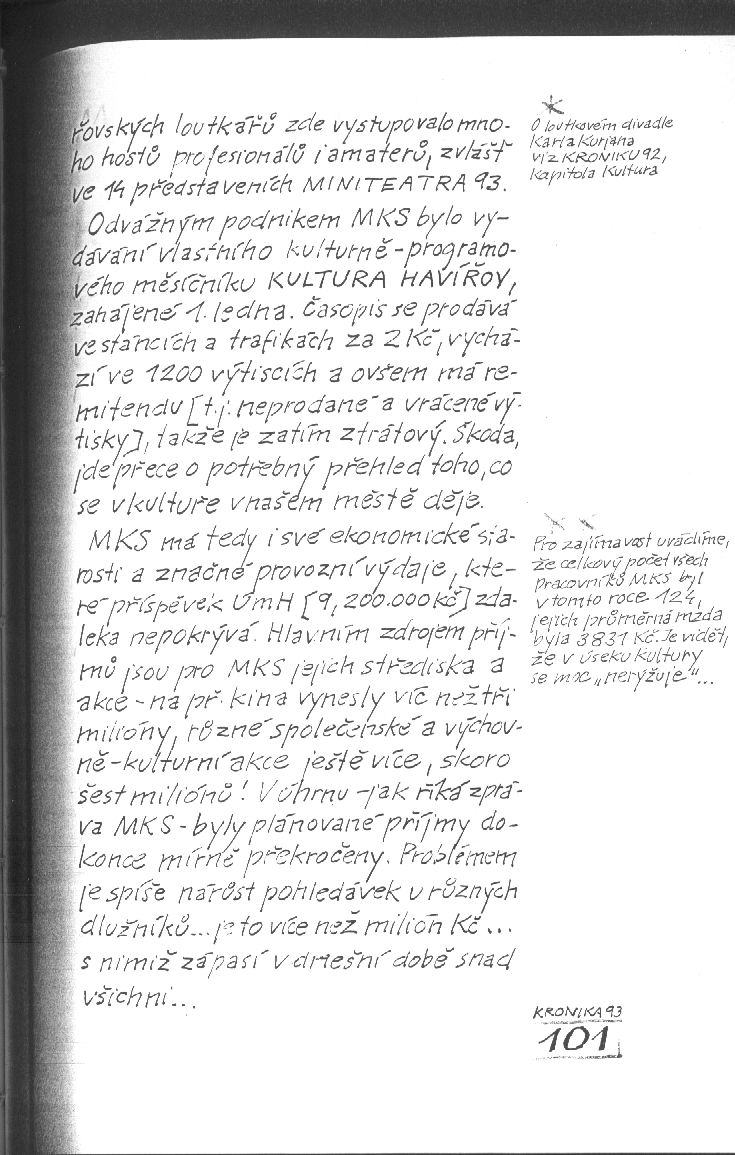 řovských loutkářů zde vystupovalo mno-
ho hostů profesionálů i amatérů, zvlášť
ve 14 představeních MINITEATRA 93.
Odvážným podnikem MKS bylo vy-
dávání vlastního kulturně-programo-
vého měsíčníku KULTURA HAVÍŘOV,
zahájené 1. ledna. Časopis se prodává
ve stáncích a trafikách za 2 Kč, vychá-
zí ve 1200 výtiscích a ovšem má re-
mitendu [t.j. neprodané a vrácené vý-
tisky], takže je zatím ztrátový. Škoda,
jde přece o potřebný přehled toho, co
se v kultuře v našem městě děje.
MKS má tedy i své ekonomické sta-
rosti a značné provozní výdaje, kte-
ré příspěvek ÚmH [9,200.000 kč] zda-
leka nepokrývá. Hlavním zdrojem příj-
mů jsou pro MKS jejich střediska a
akce - na př. kina vynesly víc než tři
milióny, různé společenské a výchov-
ně-kulturní akce ještě více, skoro
šest miliónů! V úhrnu - jak říká zprá-
va MKS - byly plánované příjmy do-
konce mírně překročeny. Problémem
je spíše nárůst pohledávek u různých
dlužníků... je to více než milión Kč...
s nimiž zápasí v dnešní době snad
všichni...
O loutkovém divadle
Karla Kurjana
viz KRONIKU 92,
kapitola Kultura
Pro zajímavost uvádíme,
že celkový počet všech
pracovníků MKS byl
v tomto roce 124,
jejich průměrná mzda
byla 3831 Kč. Je vidět,
že v úseku kultury
se moc „nerýžuje"...
KRONIKA 93
101